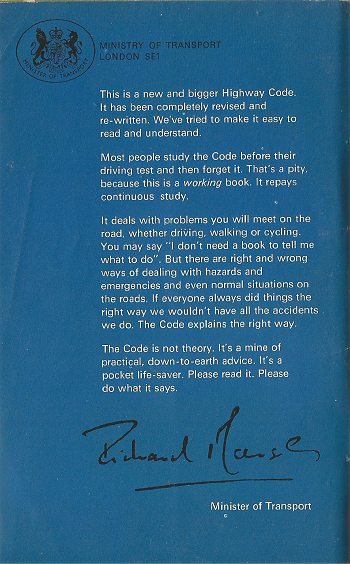 MINISTER OF TRANSPORT
MINISTRY OF TRANSPORT
LONDON SE1
This is a new and bigger Highway Code.
It has been completely revised and
re-written. We've tried to make it easy to
read and understand.
Most people study the Code before their
driving test and then forget it. That's a pity,
because this is a working book. It repays
continuous study.
It deals with problems you will meet on the
road, whether driving, walking or cycling.
You may say "I don't need a book to tell me
what to do". But there are right and wrong
ways of dealing with hazards and
emergencies and even normal situations on
the roads. If everyone always did things the
right way we wouldn't have all the accidents
we do. The Code explains the right way.
The Code is not theory. It's a mine of
practical, down-to-earth advice. It's a
pocket life-saver. Please read it. Please
do what it says.
Richard Marsh
Minister of Transport